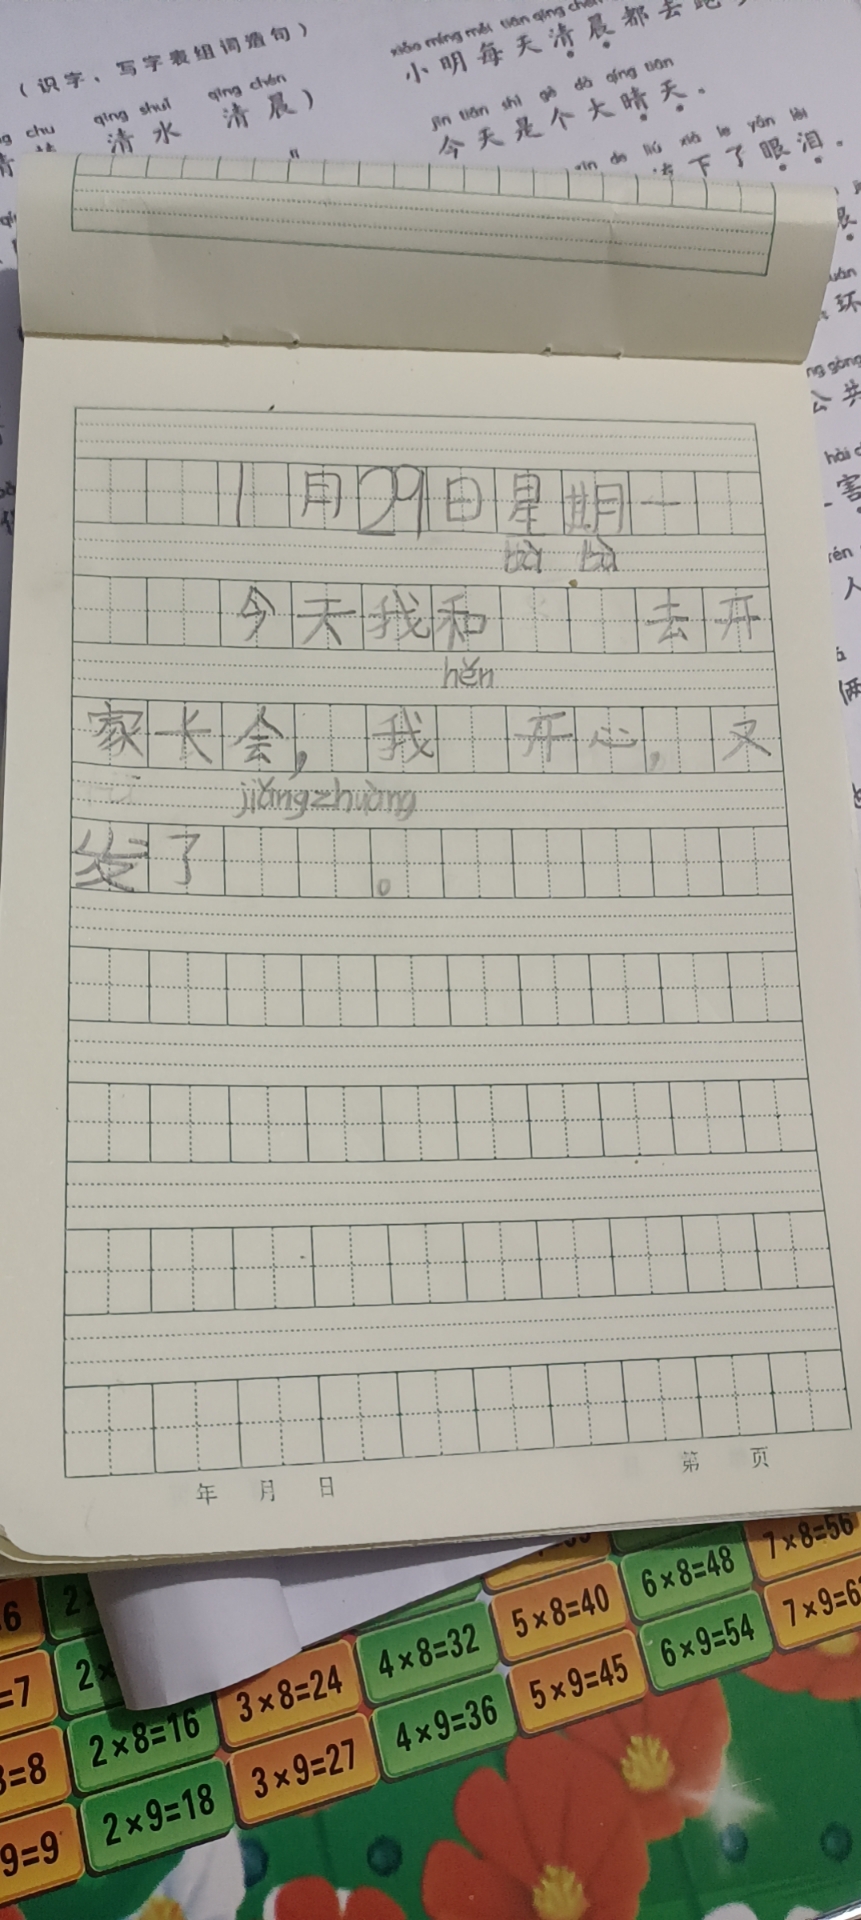 xiǎo míng měi tiān qīng chén
小明每天清晨都去跑
(识字、写字表组词造句)
qīng shuǐ qīng chén
清水 清晨)
jīn tiān shì gè dà qíng tiān
今天是个大晴天。
liú xià le yǎn lèi
下了眼泪。
环
公共
害
人
俩
1月29日星期一
bà bà
今天我和 去开
hěn
家长会，我 开心，又
jiǎngzhuàng
发了 。
年 月 日 第 页
7×8=56
6×8=48
5×8=40
4×8=32
3×8=24
2×8=16
7×9=6
6×9=54
5×9=45
4×9=36
3×9=27
2×9=18
=7
=8
9=9